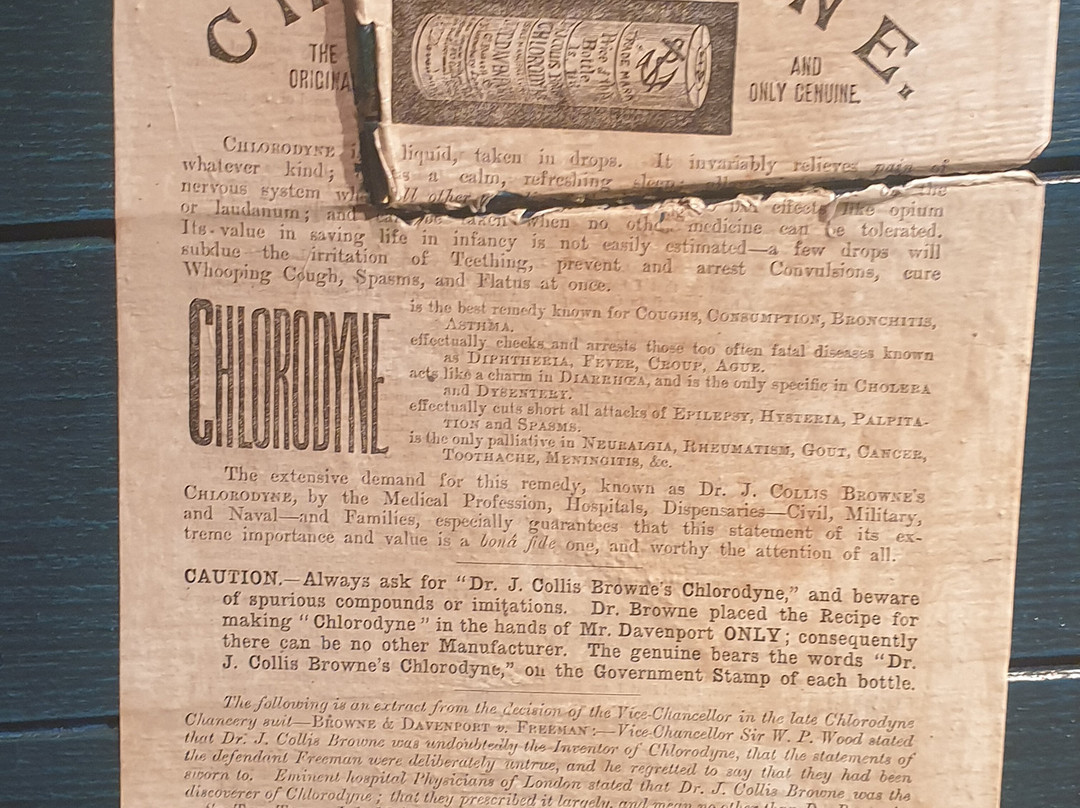 C
N E.
THE
ORIGINA
AND
ONLY GENUINE.
TRADE MARK
Bottle
CHLORODYNE
CHLORODYNE i liquid, taken in drops. It invariably relieves pain of
whatever kind; a calm, refreshing sleep;
nervous system all other the
or laudanum; and taken when no other medicine can be tolerated. effects like opium
Its value in saving life in infancy is not easily estimated—a few drops will
subdue the irritation of Teething, prevent and arrest Convulsions, cure
Whooping Cough, Spasms, and Flatus at once.
CHLORODYNE
is the best remedy known for COUGHS, CONSUMPTION, BRONCHITIS,
ASTHMA.
effectually checks and arrests those too often fatal diseases known
as DIPHTHERIA, FEVER, CROUP, AGUE.
acts like a charm in DIARRHŒA, and is the only specific in CHOLERA
and DYSENTERY.
effectually cuts short all attacks of EPILEPSY, HYSTERIA, PALPITA-
TION and SPASMS.
is the only palliative in NEURALGIA, RHEUMATISM, GOUT, CANCER,
TOOTHACHE, MENINGITIS, &c.
The extensive demand for this remedy, known as Dr. J. COLLIS BROWNE'S
CHLORODYNE, by the Medical Profession, Hospitals, Dispensaries—Civil, Military,
and Naval—and Families, especially guarantees that this statement of its ex-
treme importance and value is a bonâ fide one, and worthy the attention of all.
CAUTION.—Always ask for "Dr. J. Collis Browne's Chlorodyne," and beware
of spurious compounds or imitations. Dr. Browne placed the Recipe for
making "Chlorodyne" in the hands of Mr. Davenport ONLY; consequently
there can be no other Manufacturer. The genuine bears the words "Dr.
J. Collis Browne's Chlorodyne," on the Government Stamp of each bottle.
The following is an extract from the decision of the Vice-Chancellor in the late Chlorodyne
Chancery suit—BROWNE & DAVENPORT v. FREEMAN:—Vice-Chancellor Sir W. P. Wood stated
that Dr. J. Collis Browne was undoubtedly the Inventor of Chlorodyne, that the statements of
the defendant Freeman were deliberately untrue, and he regretted to say that they had been
sworn to. Eminent hospital Physicians of London stated that Dr. J. Collis Browne was the
discoverer of Chlorodyne; that they prescribed it largely, and mean no other than Dr.